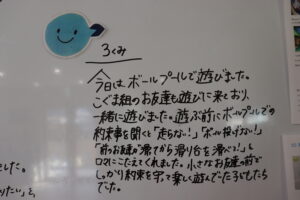 3くみ
今日は、ボールプールで遊びました。
こぐま組のお友達も遊びに来ており、
一緒に遊びました。遊ぶ前にボールプールでの
約束事を聞くと「走らない!」「ボール投げない!」
「前のお友達が滑ってから滑り台を滑って!」と
口々にこたえてくれました。小さなお友達の前で
しっかり約束を守って楽しく遊んでいた子どもたち
でした。
した。
たい」と、